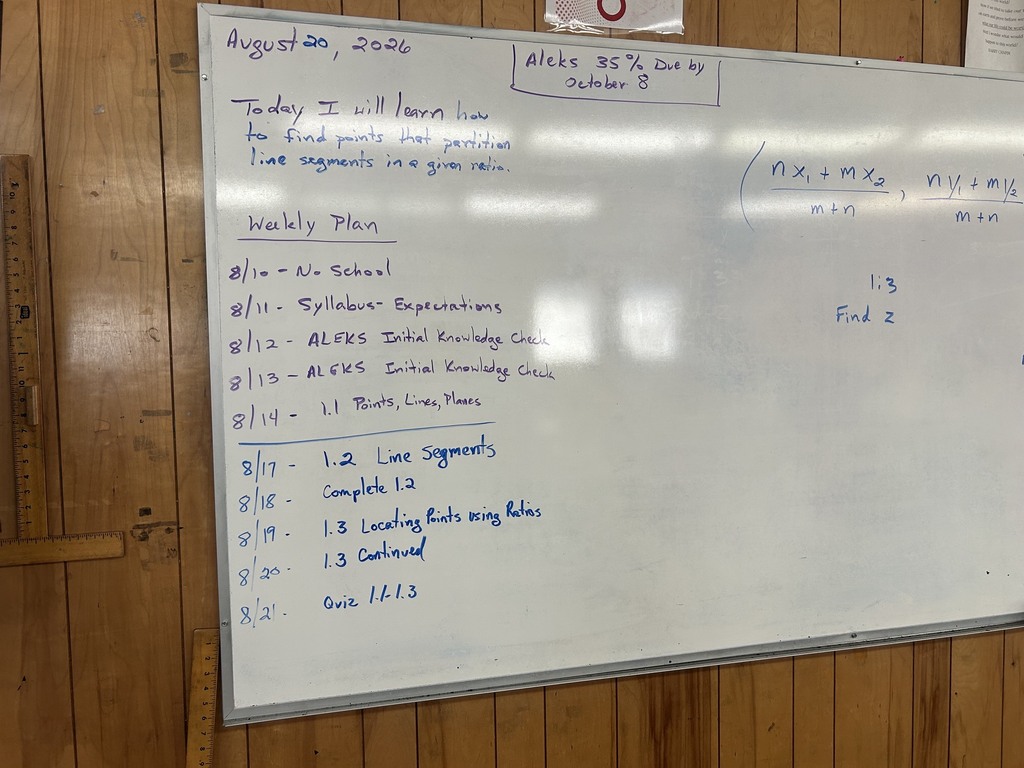 August 20, 2026
Aleks 35% Due by
October 8
Today I will learn how
to find points that partition
line segments in a given ratio.
( nx₁ + mx₂ / m+n , ny₁ + my₂ / m+n
1:3
Find z
Weekly Plan
8/10 - No School
8/11 - Syllabus - Expectations
8/12 - ALEKS Initial Knowledge Check
8/13 - ALEKS Initial Knowledge Check
8/14 - 1.1 Points, Lines, Planes
8/17 - 1.2 Line Segments
8/18 - Complete 1.2
8/19 - 1.3 Locating Points using Ratios
8/20 - 1.3 Continued
8/21 - Quiz 1.1-1.3